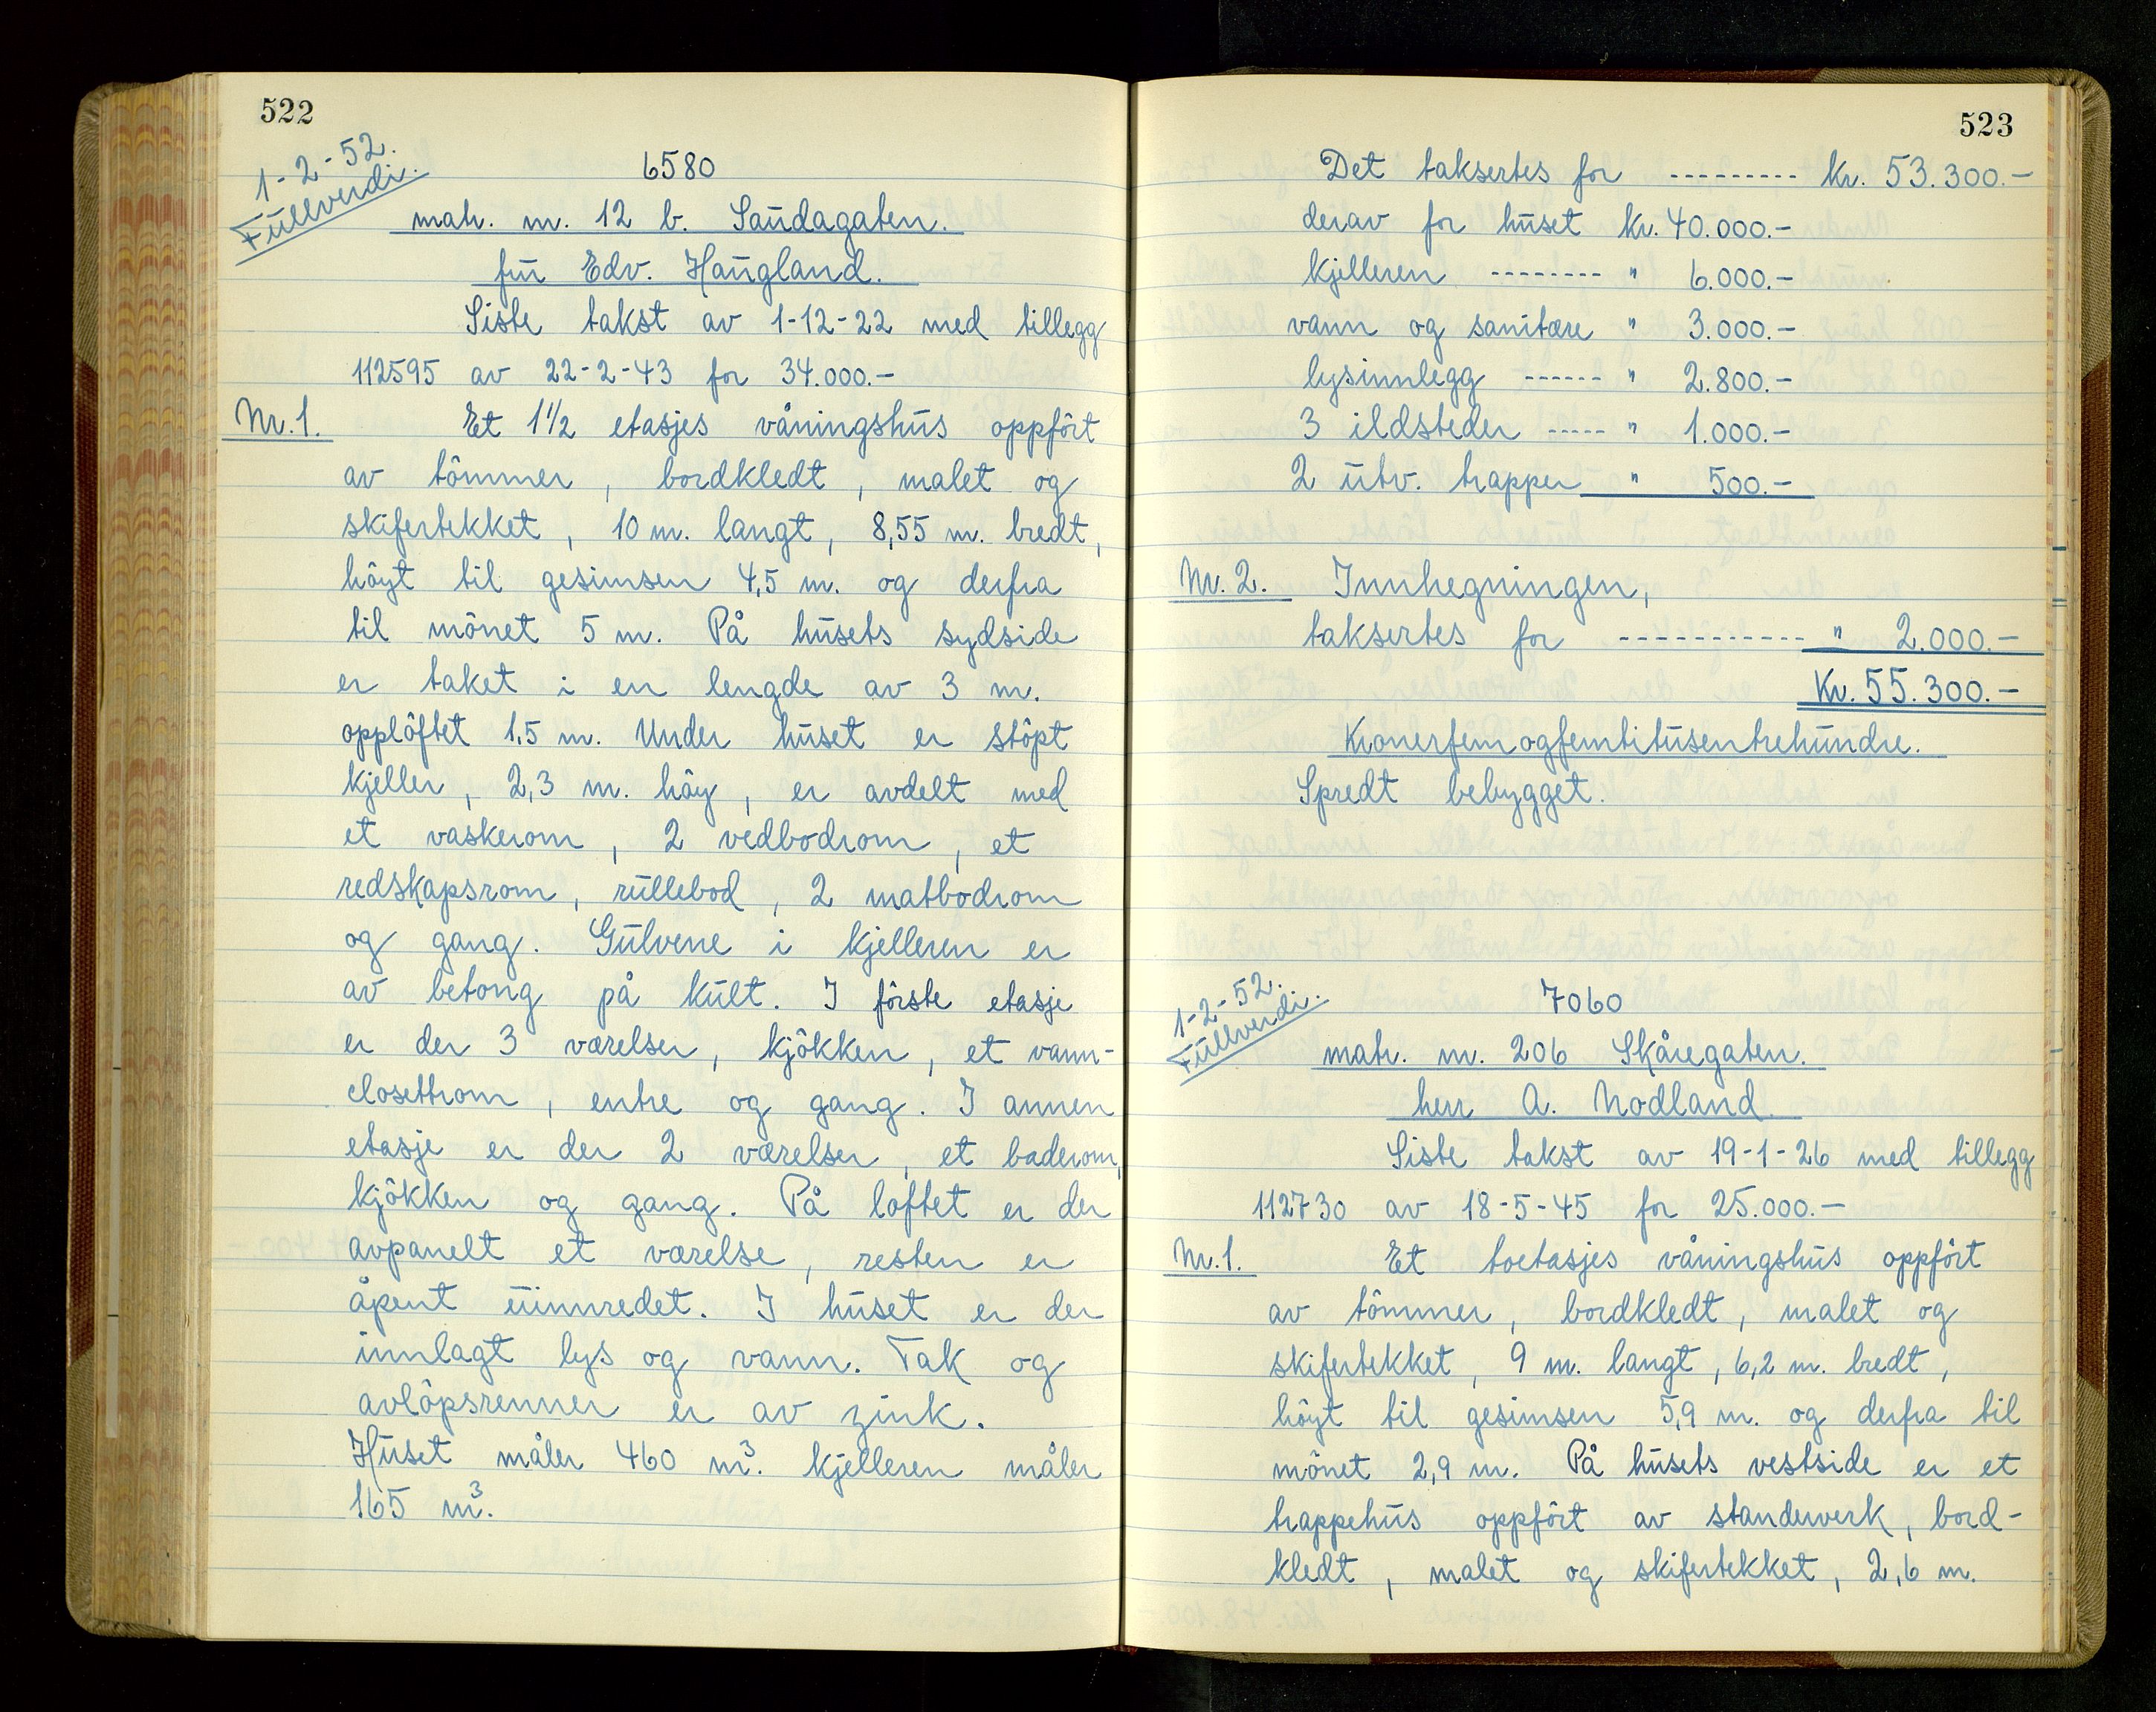 522
1-2-52.
Fullverdi.
6580
matr. nr. 12 b. Saudagaten.
fru Edv. Haugland.
Siste takst av 1-12-22 med tillegg
112595 av 22-2-43 for 34.000.-
Nr. 1. Et 1½ etasjes våningshus oppfört
av tömmer, bordkledt, malet og
skifertekket, 10 m. langt, 8,55 m. bredt,
höyt til gesimsen 4,5 m. og derfra
til mönet 5 m. På husets sydside
er taket i en lengde av 3 m.
opplöftet 1,5 m. Under huset er stöpt
kjeller, 2,3 m. höy, er avdelt med
et vaskerom, 2 vedbodrom, et
redskapsrom, rullebod, 2 matbodrom
og gang. Gulvene i kjelleren er
av betong på kult. I förste etasje
er der 3 værelser, kjökken, et vann-
closettrom, entre og gang. I annen
etasje er der 2 værelser, et baderom,
kjökken og gang. På loftet er der
avpanelt et værelse, resten er
åpent uinnredet. I huset er der
innlagt lys og vann. Tak og
avlöpsrenner er av zink.
Huset måler 460 m³. kjelleren måler
165 m³.
523
Det taksertes for --------- kr. 53.300.-
derav for huset kr. 40.000.-
kjelleren -------- " 6.000.-
vann og sanitære " 3.000.-
lysinnlegg ------ " 2.800.-
3 ildsteder ----- " 1.000.-
2 utv. trapper " 500.-
Nr. 2. Innhegningen,
taksertes for ----------- " 2.000.-
Kr. 55.300.-
Kronerfemogfemtitusentrehundre.
Spredt bebygget.
1-2-52.
Fullverdi.
7060
matr. nr. 206 Skåregaten.
herr A. Nodland.
Siste takst av 19-1-26 med tillegg
112730 av 18-5-45 for 25.000.-
Nr. 1. Et toetasjes våningshus oppfört
av tömmer, bordkledt, malet og
skifertekket, 9 m. langt, 6,2 m. bredt,
höyt til gesimsen 5,9 m. og derfra til
mönet 2,9 m. På husets vestside er et
trappehus oppfört av standerverk, bord-
kledt, malet og skifertekket, 2,6 m.